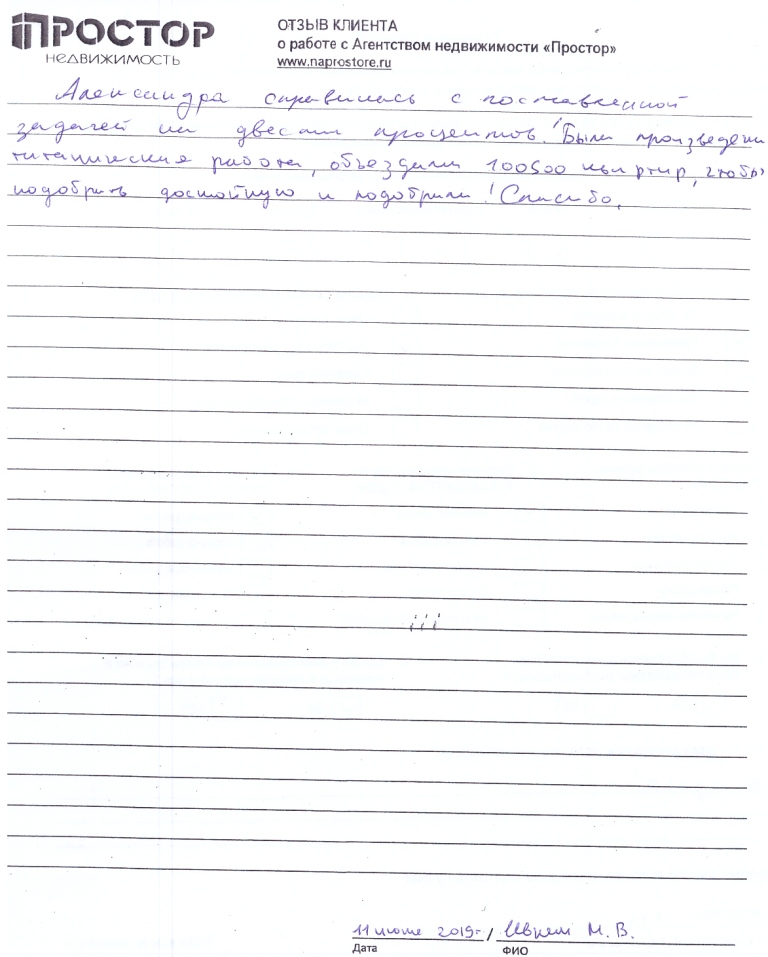 ПРОСТОР
НЕДВИЖИМОСТЬ
ОТЗЫВ КЛИЕНТА
о работе с Агентством недвижимости «Простор»
www.naprostore.ru
Александра справилась с поставленной
задачей на двести процентов! Были произведены
титанические работы, объездили 100500 квартир, чтобы
подобрать достойную и подобрали! Спасибо.
11 июня 2019г. / М. В.
Дата
ФИО